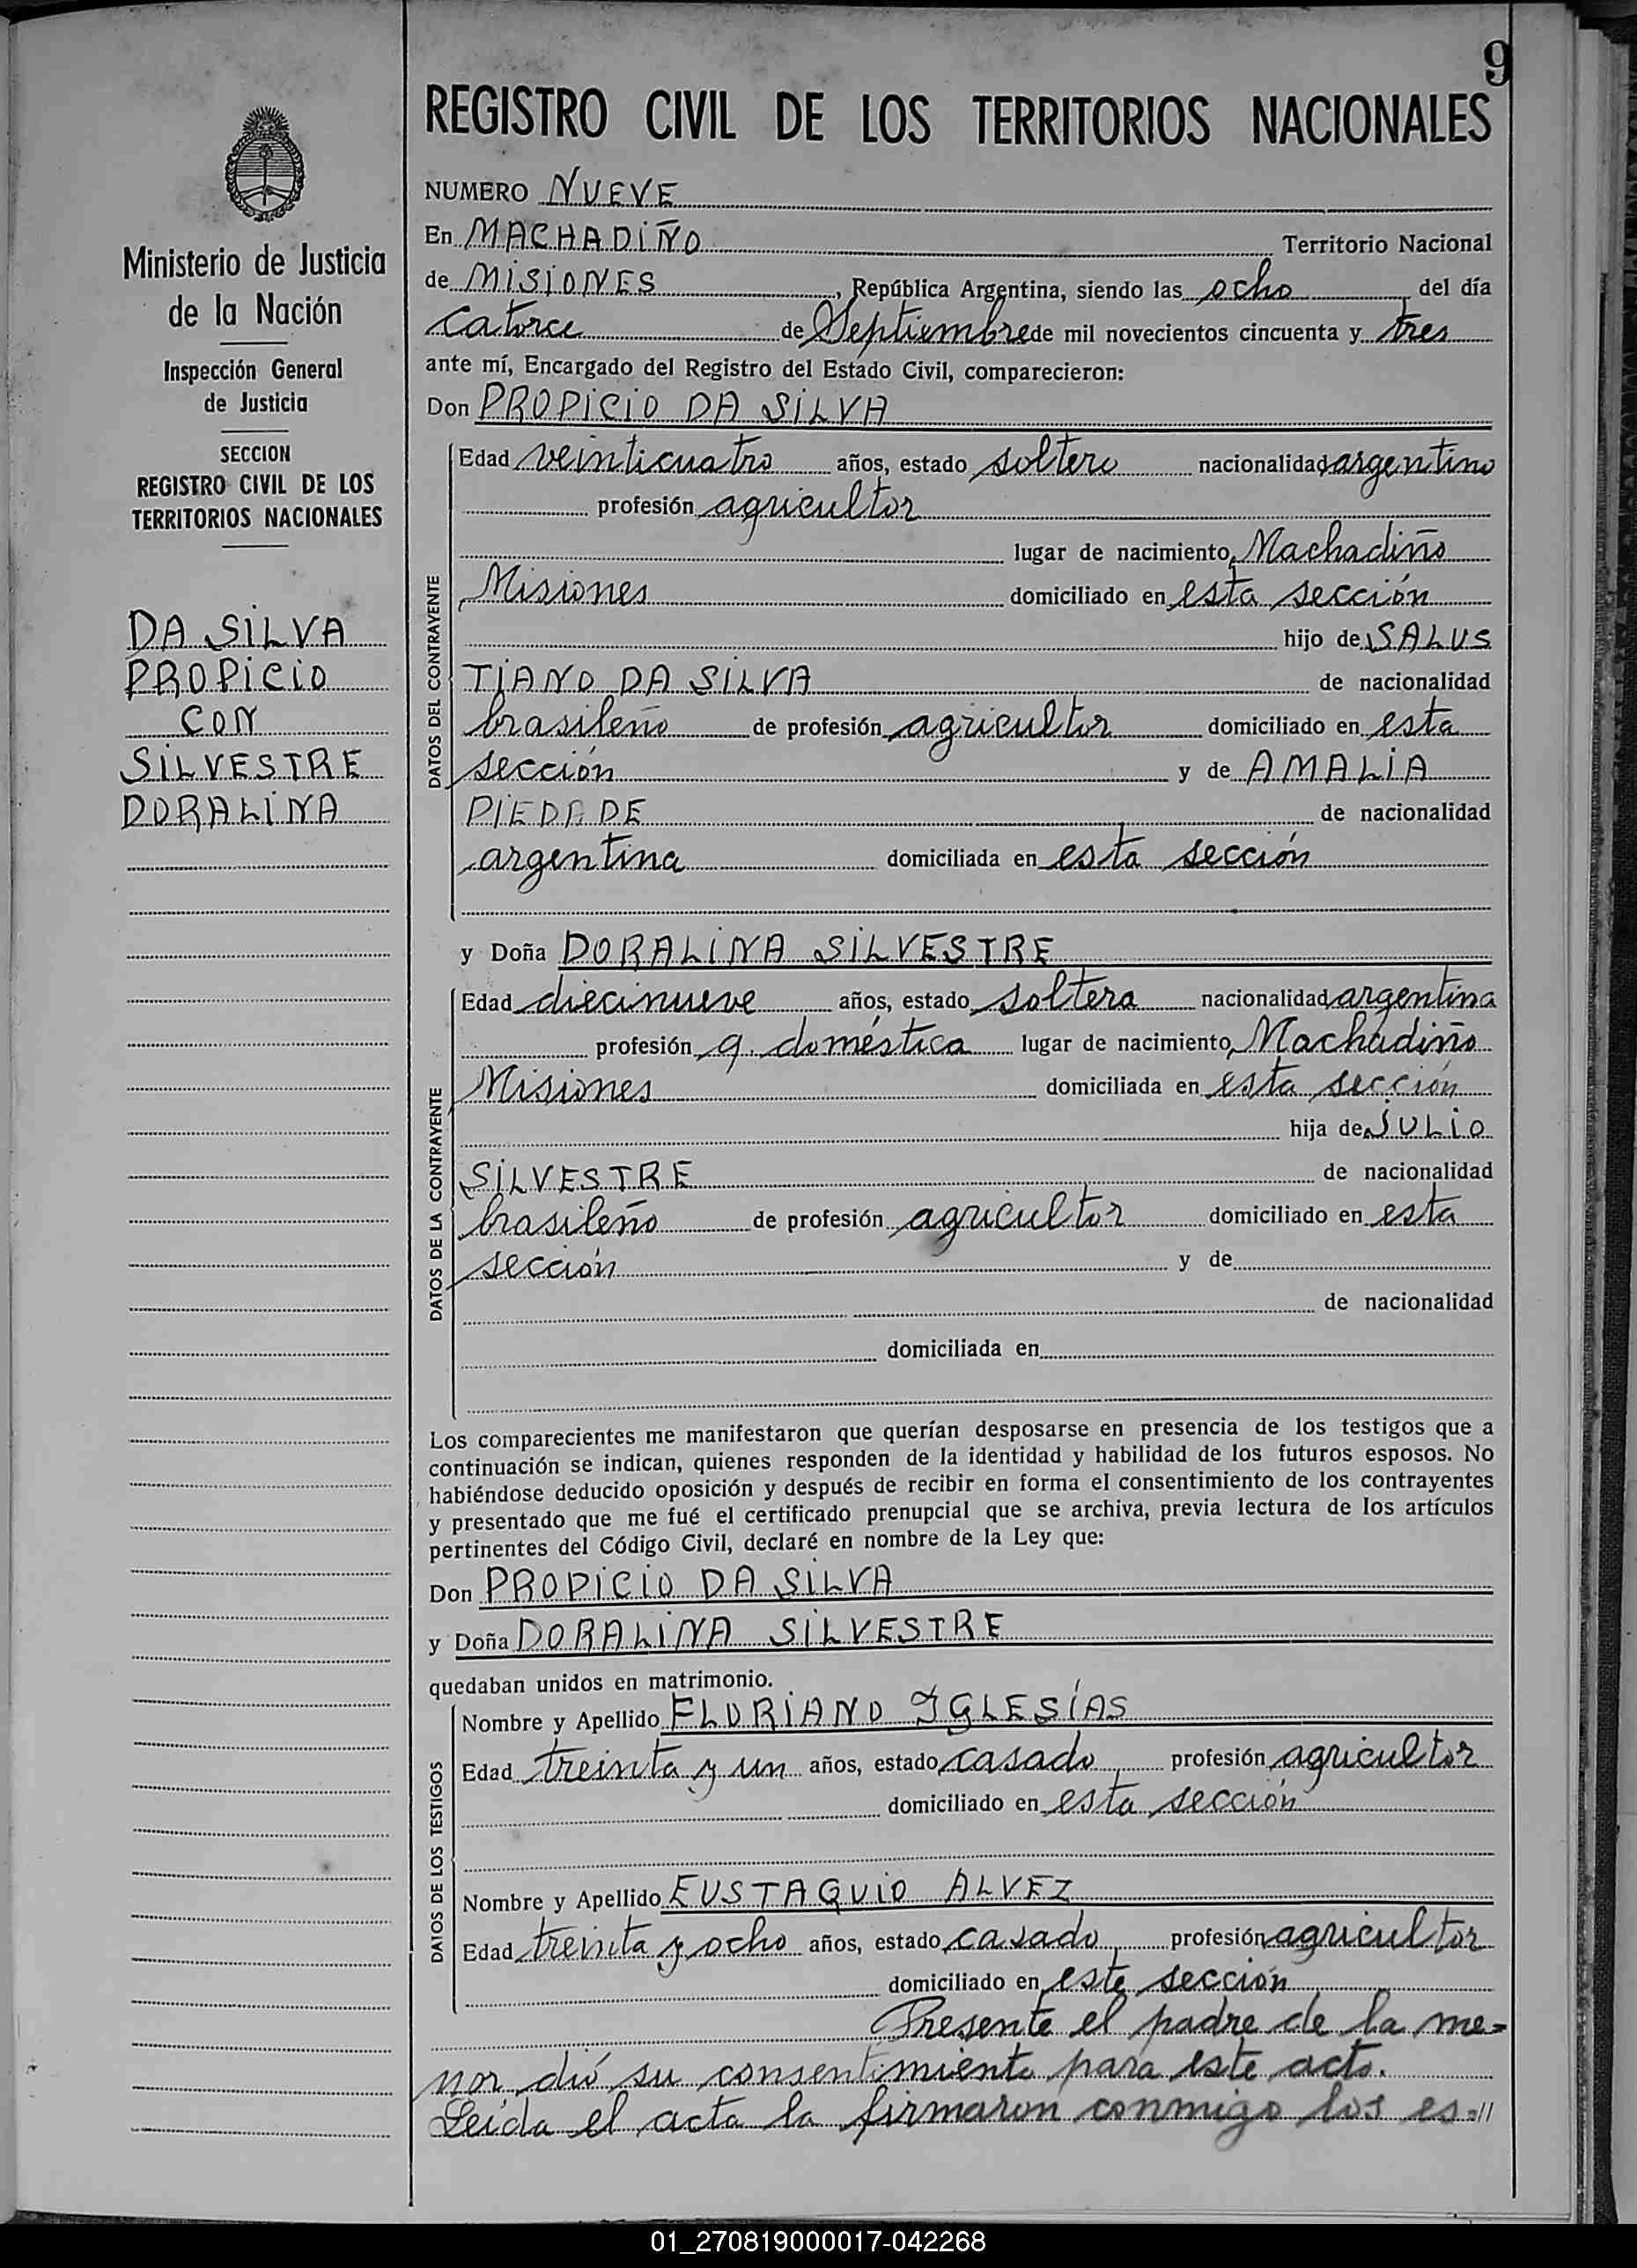 9
REGISTRO CIVIL DE LOS TERRITORIOS NACIONALES
Ministerio de Justicia
de la Nación
Inspección General
de Justicia
SECCION
REGISTRO CIVIL DE LOS
TERRITORIOS NACIONALES
DA SILVA
PROPICIO
CON
SILVESTRE
DORALINA
NUMERO NUEVE
En MACHADIÑO Territorio Nacional
de MISIONES, República Argentina, siendo las ocho del día
catorce de Septiembre de mil novecientos cincuenta y tres
ante mí, Encargado del Registro del Estado Civil, comparecieron:
Don PROPICIO DA SILVA
DATOS DEL CONTRAYENTE
Edad veinticuatro años, estado soltero nacionalidad argentino
profesión agricultor
lugar de nacimiento Machadiño
Misiones domiciliado en esta sección
hijo de SALUS
TIANO DA SILVA de nacionalidad
brasileño de profesión agricultor domiciliado en esta
sección y de AMALIA
PIEDADE de nacionalidad
argentina domiciliada en esta sección
y Doña DORALINA SILVESTRE
DATOS DE LA CONTRAYENTE
Edad diecinueve años, estado soltera nacionalidad argentina
profesión q. doméstica lugar de nacimiento Machadiño
Misiones domiciliada en esta sección
hija de JULIO
SILVESTRE de nacionalidad
brasileño de profesión agricultor domiciliado en esta
sección y de
de nacionalidad
domiciliada en
Los comparecientes me manifestaron que querían desposarse en presencia de los testigos que a
continuación se indican, quienes responden de la identidad y habilidad de los futuros esposos. No
habiéndose deducido oposición y después de recibir en forma el consentimiento de los contrayentes
y presentado que me fué el certificado prenupcial que se archiva, previa lectura de los artículos
pertinentes del Código Civil, declaré en nombre de la Ley que:
Don PROPICIO DA SILVA
y Doña DORALINA SILVESTRE
quedaban unidos en matrimonio.
DATOS DE LOS TESTIGOS
Nombre y Apellido FLORIANO IGLESÍAS
Edad treinta y un años, estado casado profesión agricultor
domiciliado en esta sección
Nombre y Apellido EUSTAQUIO ALVEZ
Edad treinta y ocho años, estado casado profesión agricultor
domiciliado en este sección
Presente el padre de la me=
nor dió su consentimiento para este acto.
Leída el acta la firmaron conmigo los es=//
01_270819000017-042268